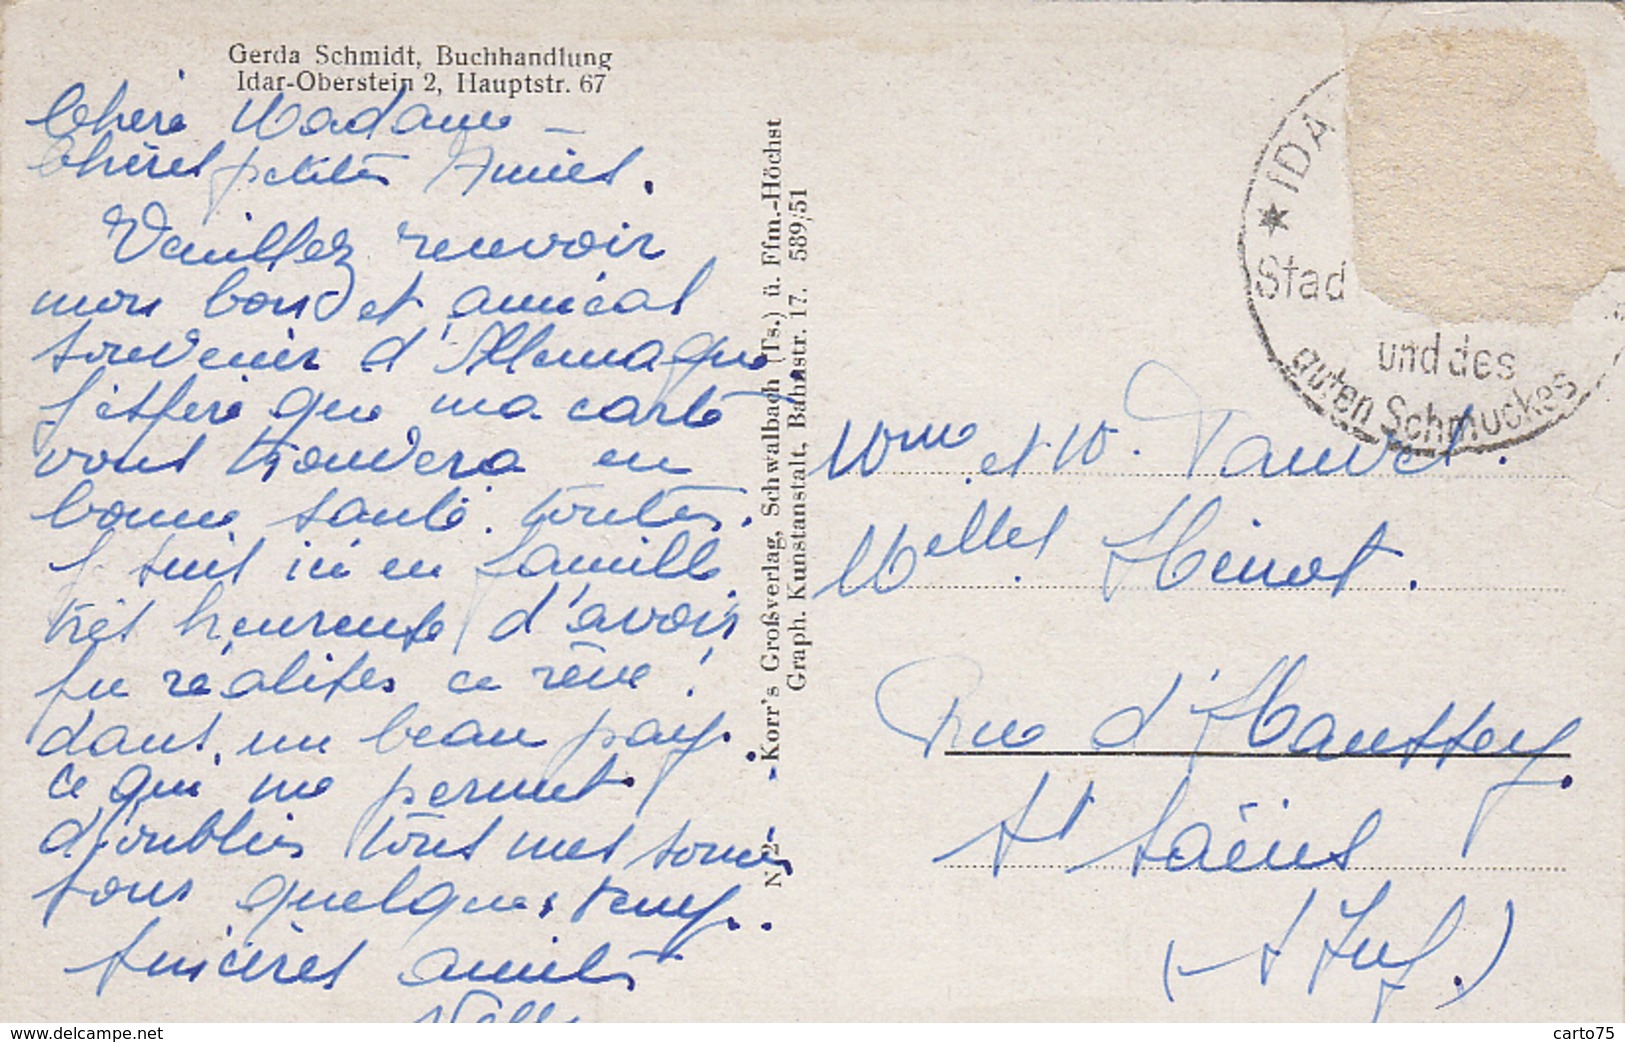 Gerda Schmidt, Buchhandlung
Idar-Oberstein 2, Hauptstr. 67
Chère Madame –
Chères petites Amies.
Veuillez recevoir
mon bon et amical
souvenir d'Allemagne
J'espère que ma carte
vous trouvera en
bonne santé. toutes.
Je suis ici en famille
très heureuse d'avoir
pu réaliser ce rêve !
dans un beau pays.
ce qui me permet
d'oublier tous mes soucis
pour quelques temps.
sincères amitiés
N 2 - Korr's Großverlag, Schwalbach (Ts.) ü. Ffm.-Höchst
Graph. Kunstanstalt, Bahnstr. 17. 589/51
★ IDA
Stad
und des
guten Schmuckes
Mme et M.
Melles
Rue d'
St Saëns
(S Inf.)
www.delcampe.net
carto75